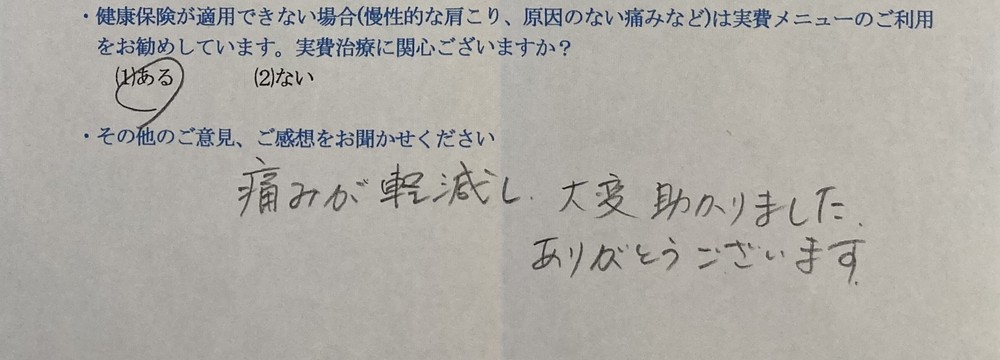 ・健康保険が適用できない場合(慢性的な肩こり、原因のない痛みなど)は実費メニューのご利用
をお勧めしています。実費治療に関心ございますか？
(1)ある　(2)ない
・その他のご意見、ご感想をお聞かせください
痛みが軽減し、大変助かりました。
ありがとうございます。